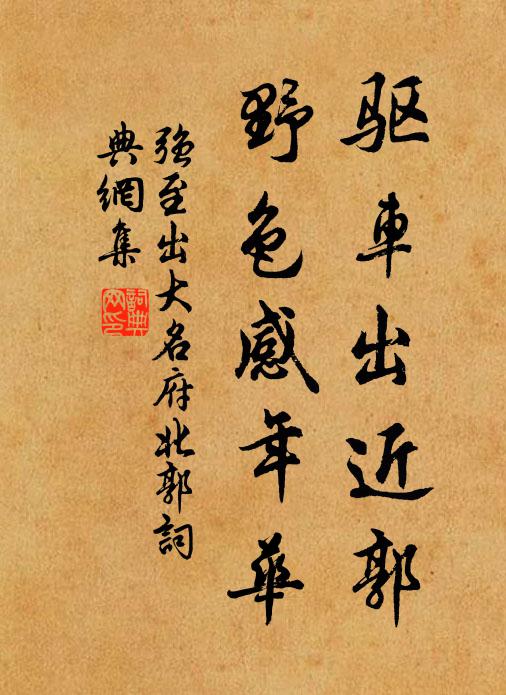 驱車出近郭
野色感年華
強至出大名府北郭詞
典網集
詞典網印